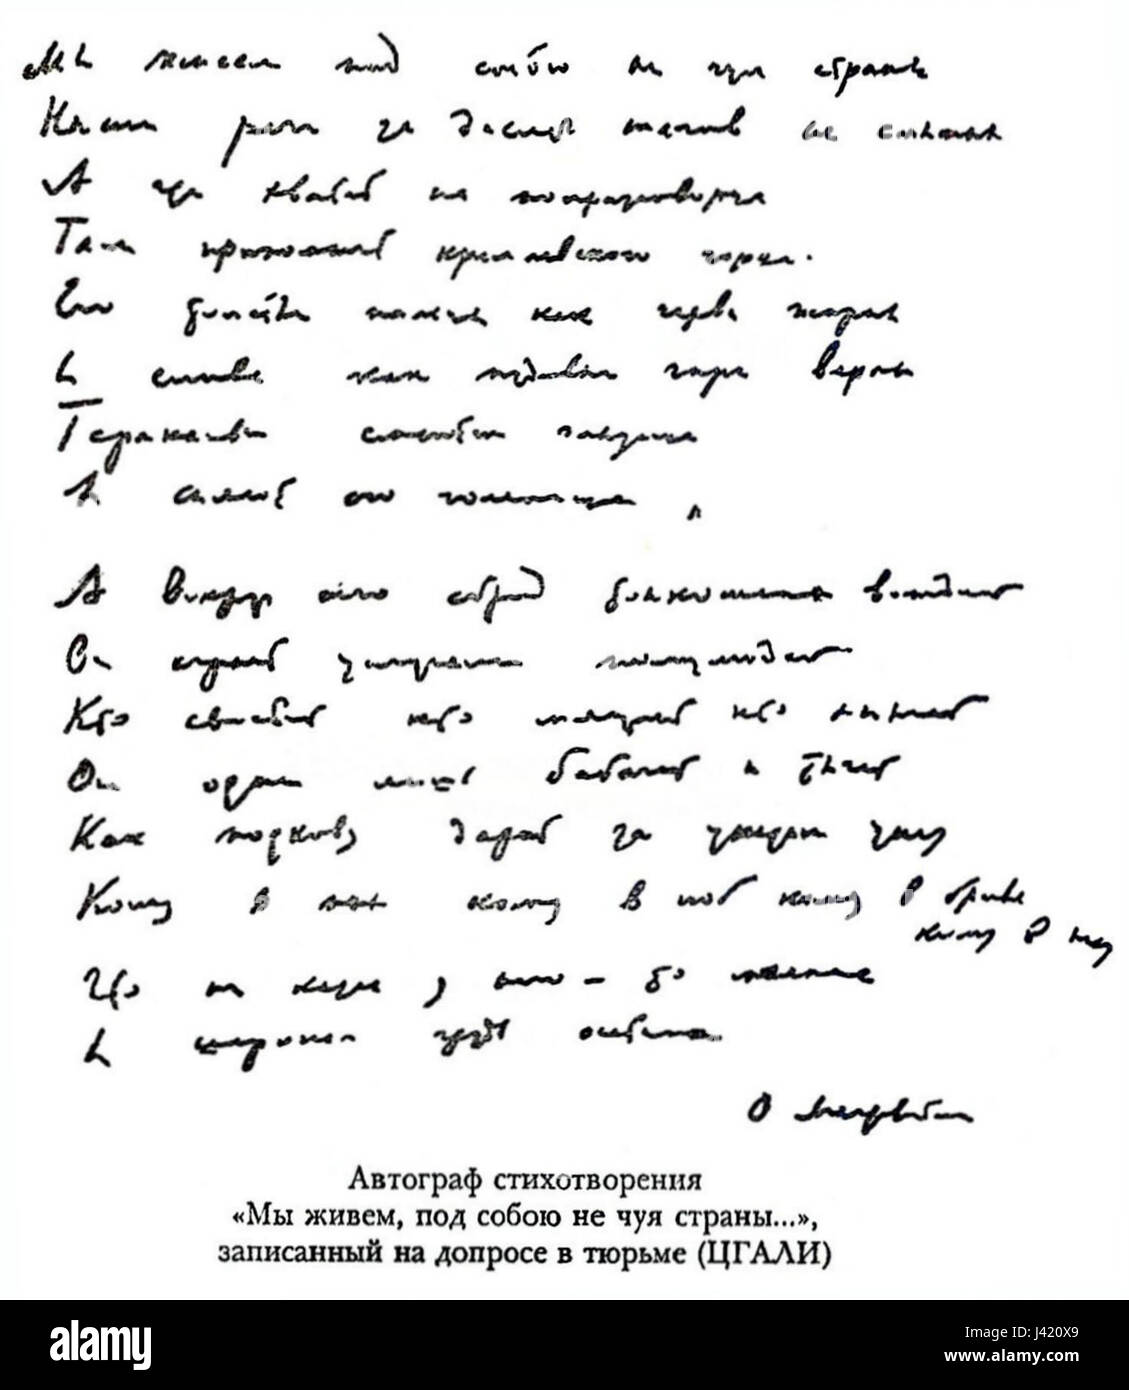 Мы живем под собою не чуя страны
Наши речи за десять шагов не слышны
А где хватит на полразговорца
Там припомнят кремлевского горца.
Его толстые пальцы как черви жирны
И слова как пудовые гири верны
Тараканьи смеются глазища
И сияют его голенища

А вокруг его сброд тонкошеих вождей
Он играет услугами полулюдей
Кто свистит кто мяучит кто хнычет
Он один лишь бабачит и тычет
Как подкову дарит за указом указ
Кому в пах кому в лоб кому в бровь
кому в глаз
Что ни казнь у него - то малина
И широкая грудь осетина
О Мандельштам
Автограф стихотворения
«Мы живем, под собою не чуя страны...»,
записанный на допросе в тюрьме (ЦГАЛИ)
alamy
Image ID: J420X9
www.alamy.com